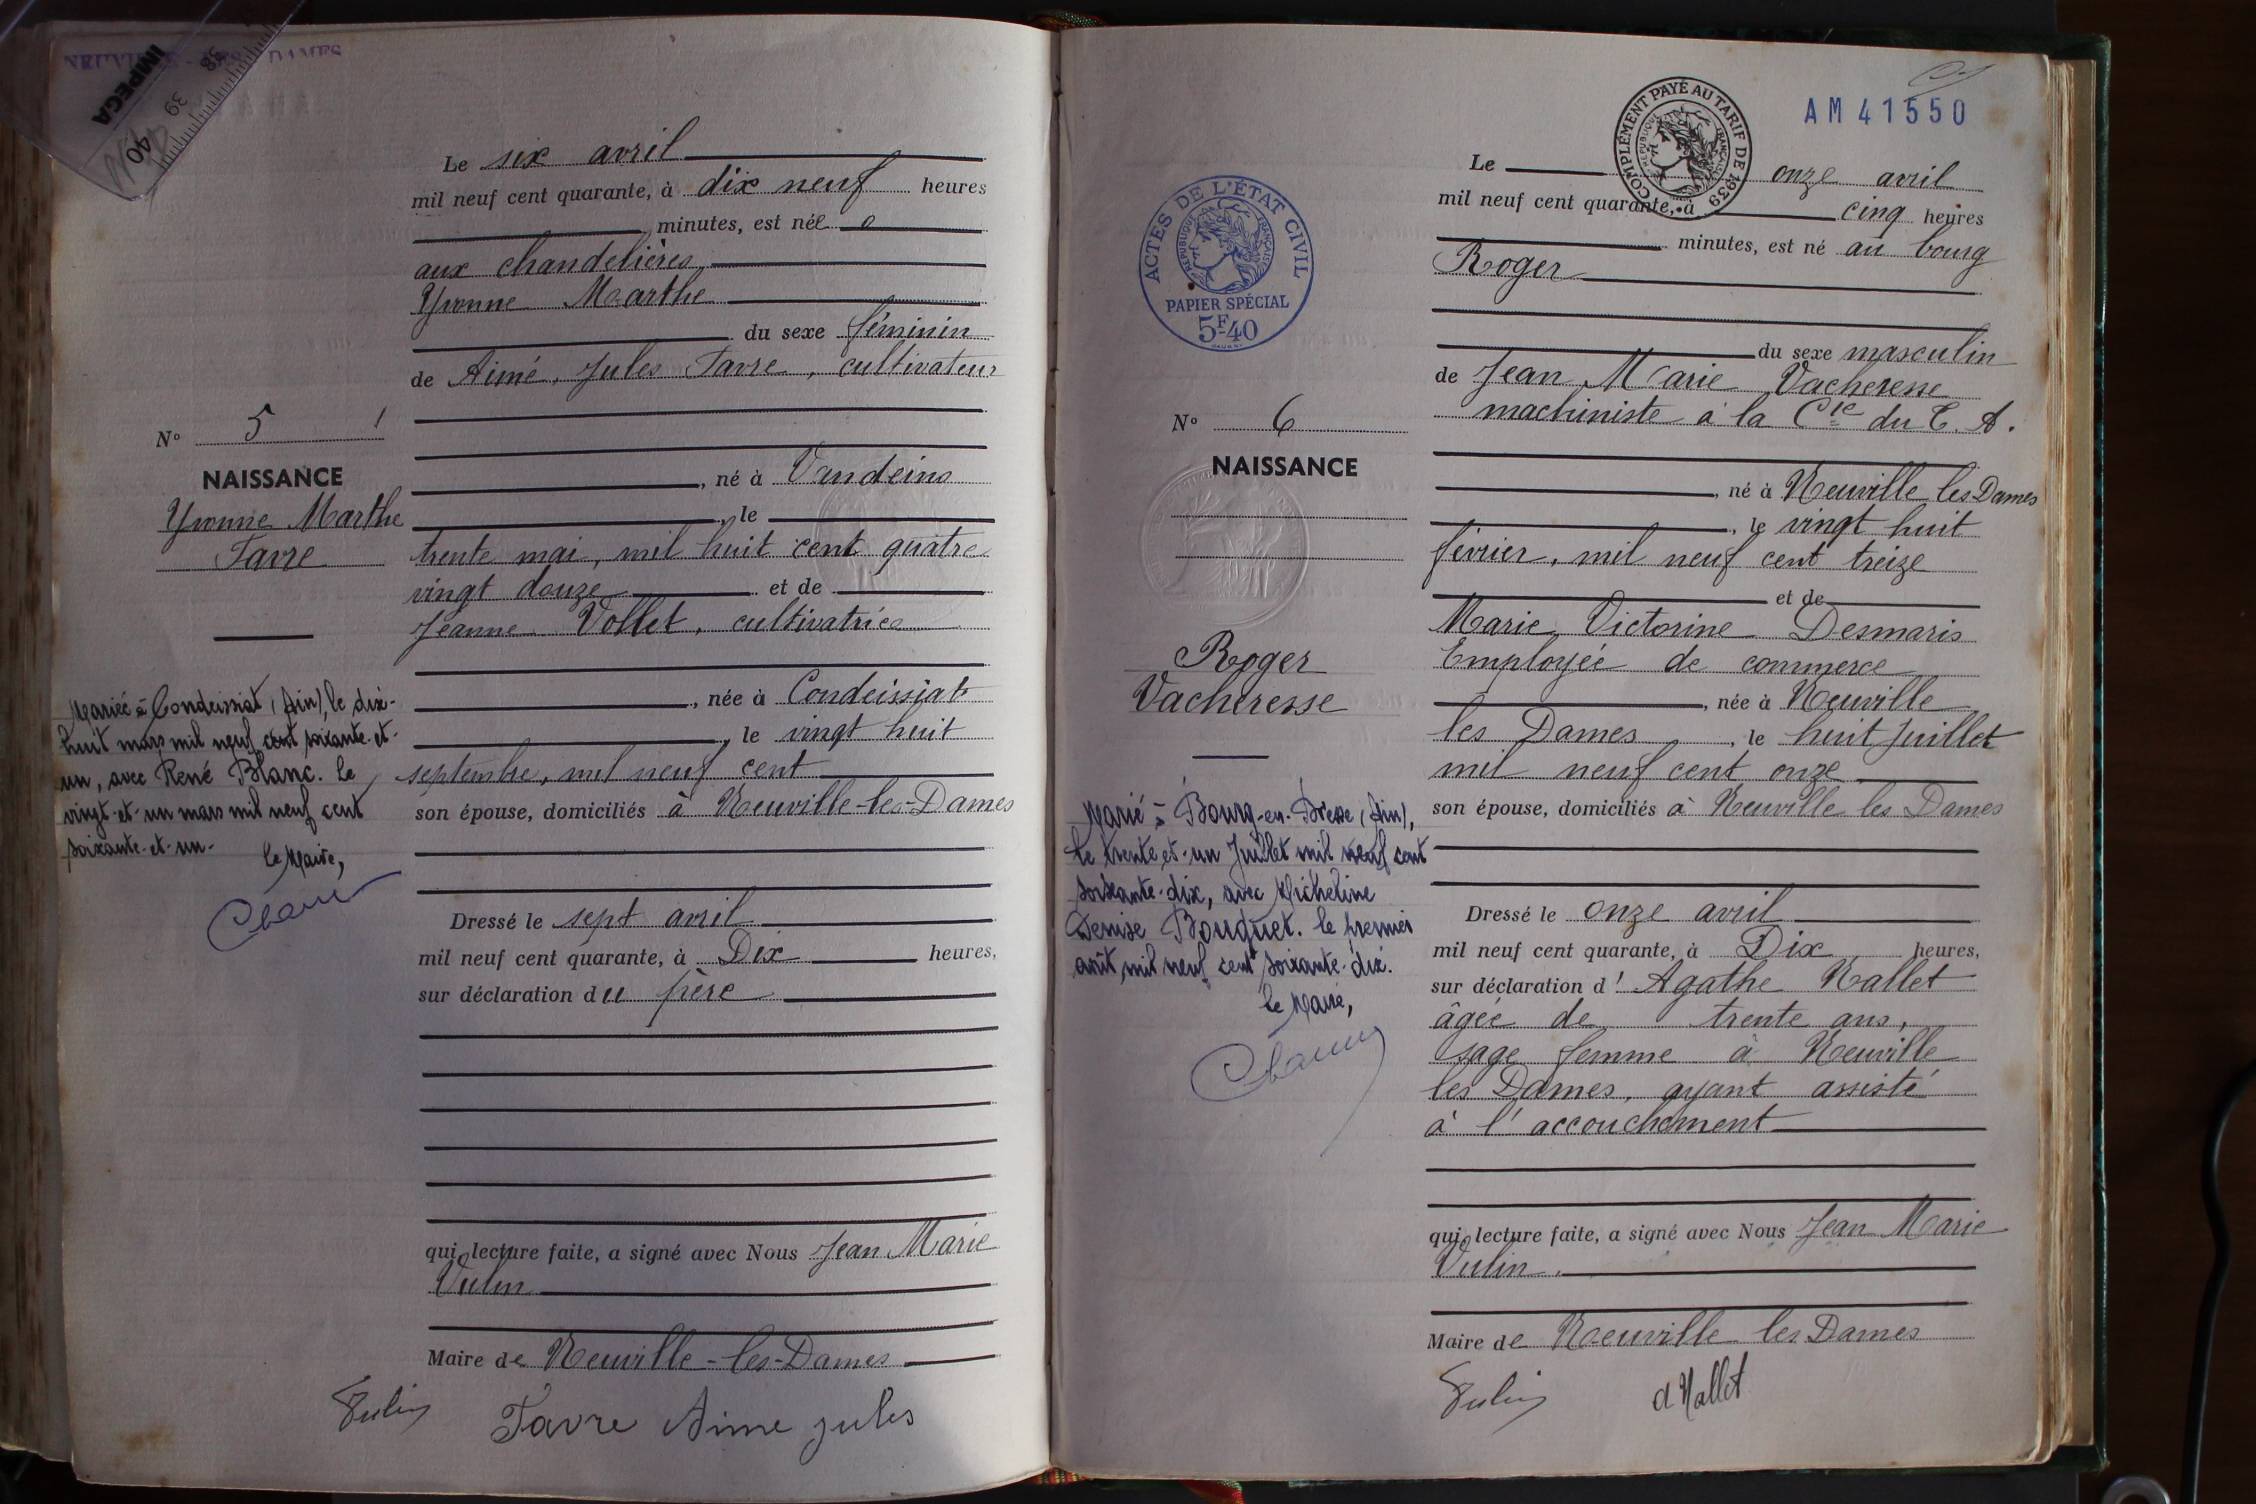 NEUVILLE-LES-DAMES
IMPEGA
38
39
40
Le six avril
mil neuf cent quarante, à dix neuf heures
minutes, est née
aux chandelières
Yvonne Marthe
du sexe féminin
de Aimé, Jules Favre, cultivateur
né à Vandeins
, le
trente mai, mil huit cent quatre
vingt douze et de
Jeanne Vollet, cultivatrice
, née à Condeissiat
, le vingt huit
septembre, mil neuf cent
son épouse, domiciliés à Neuville-les-Dames
Dressé le sept avril
mil neuf cent quarante, à Dix heures,
sur déclaration du père
qui, lecture faite, a signé avec Nous Jean Marie
Vulin
Maire de Neuville-les-Dames
Vulin
Favre Aime jules
N° 5
NAISSANCE
Yvonne Marthe
Favre
Mariée à Condeissiat (Ain), le dix-
huit mars mil neuf cent soixante-et-
un, avec René Blanc. Le
vingt-et-un mars mil neuf cent
soixante-et-un.
Le Maire,
AM 41550
COMPLÉMENT PAYÉ AU TARIF DE 1939
RÉPUBLIQUE FRANÇAISE
ACTES DE L'ÉTAT CIVIL
RÉPUBLIQUE FRANÇAISE
PAPIER SPÉCIAL
5F40
N° 6
NAISSANCE
Roger
Vacheresse
Marié à Bourg-en-Bresse (Ain),
le trente-et-un Juillet mil neuf cent
soixante-dix, avec Micheline
Denise Bouquet. Le premier
août mil neuf cent soixante-dix.
Le Maire,
Le onze avril
mil neuf cent quarante, à cinq heures
minutes, est né au bourg
Roger
du sexe masculin
de Jean Marie Vacheresse
machiniste à la Cie du T. A.
, né à Neuville les Dames
, le vingt huit
février, mil neuf cent treize
et de
Marie Victorine Desmaris
Employée de commerce
, née à Neuville
les Dames, le huit juillet
mil neuf cent onze
son épouse, domiciliés à Neuville les Dames
Dressé le onze avril
mil neuf cent quarante, à Dix heures,
sur déclaration d'Agathe Nallet
âgée de trente ans,
sage femme à Neuville
les Dames, ayant assisté
à l'accouchement
qui, lecture faite, a signé avec Nous Jean Marie
Vulin.
Maire de Neuville les Dames
Vulin
A Nallet